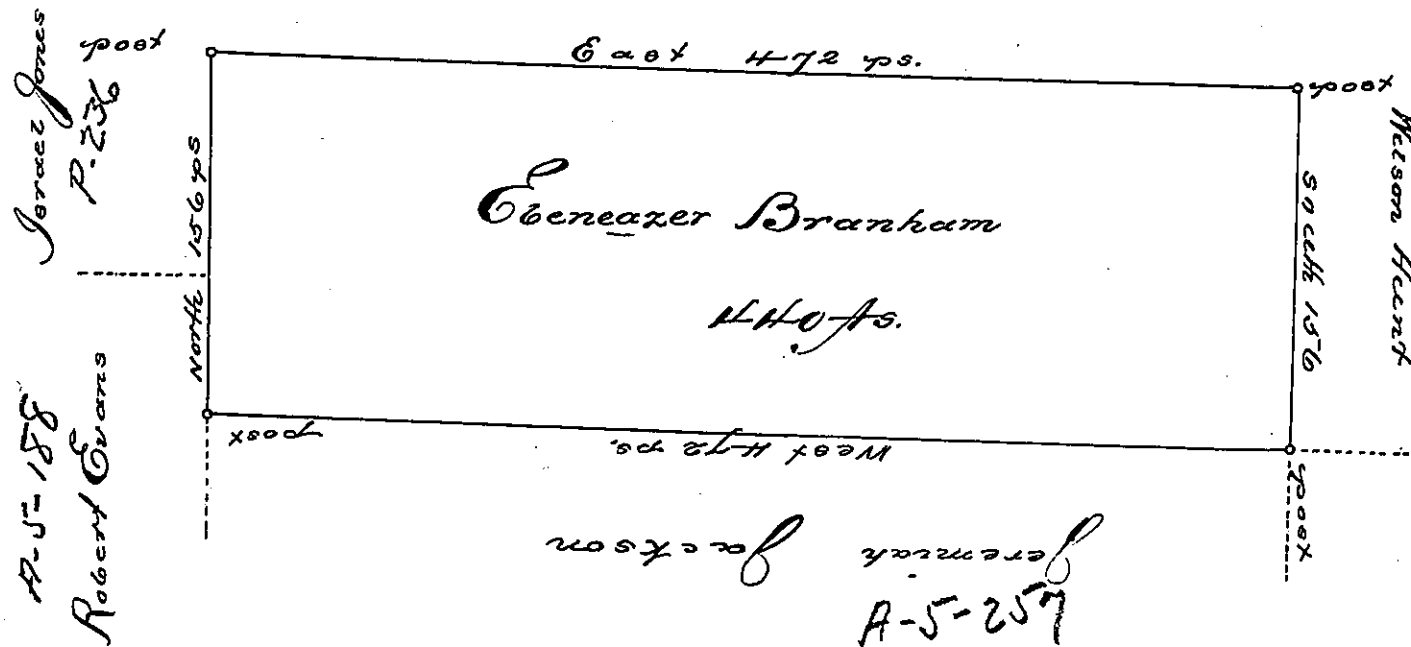 Israel Jones
P-236
post
East 472 ps.
post
North 156 ps
Ebeneazer Branham
440 As.
South 156
Welson Hunt
A-5-188
Robert Evans
post
West 472 ps.
post
Jeremiah Jackson
A-5-257